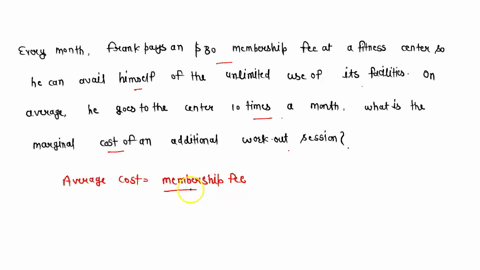 Every month, Frank pays an $80 membership fee at a fitness center so
he can avail himself of the unlimited use of its facilities. On
average, he goes to the center 10 times a month. what is the
marginal cost of an additional work-out session?
Average cost = membership fee